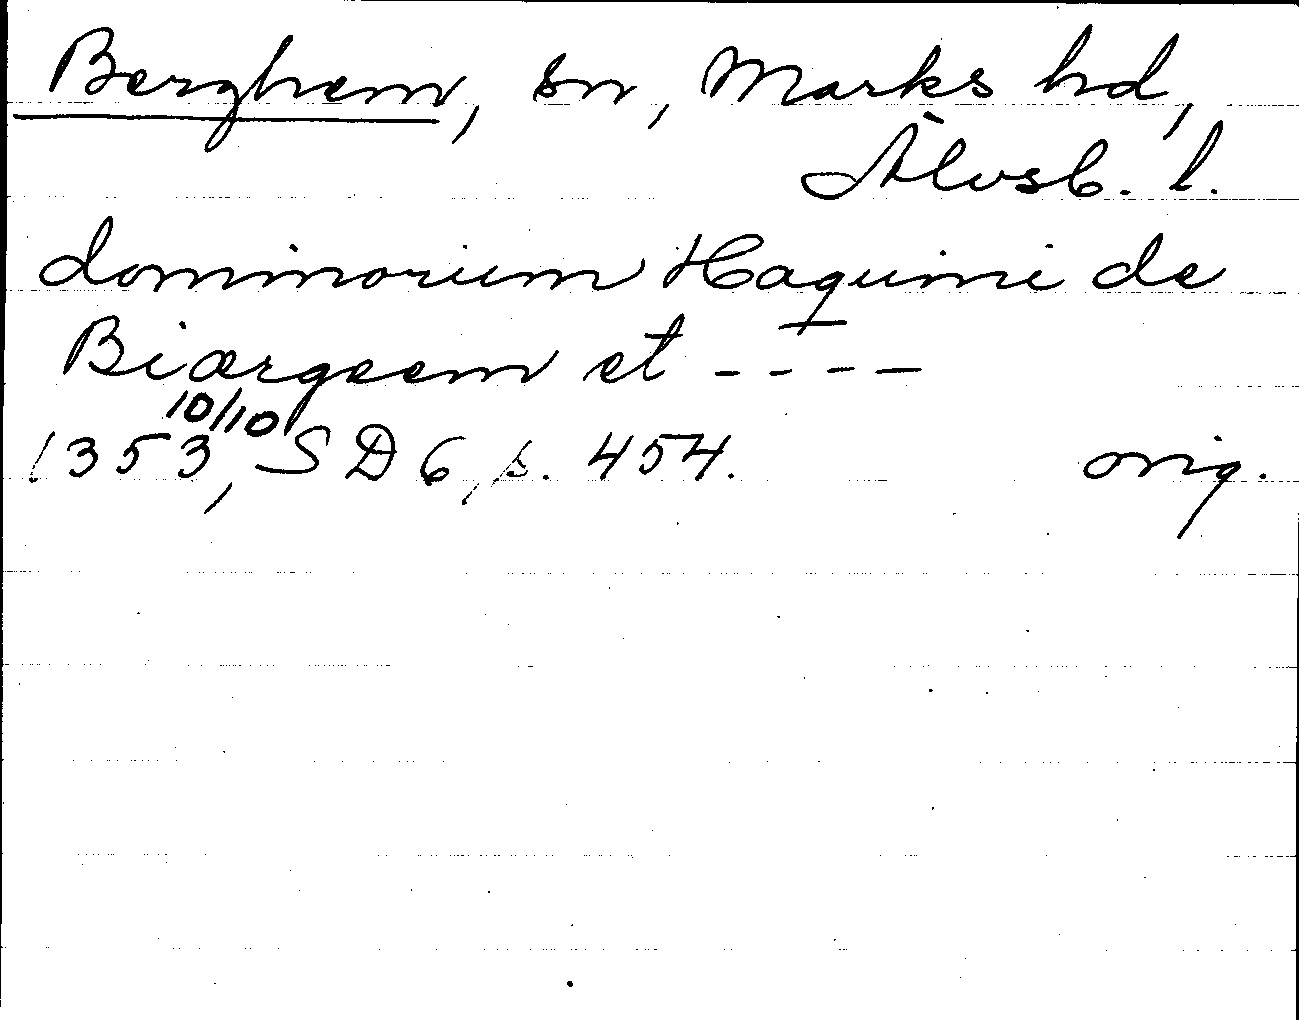 Berghem, sn, Marks hd,
Älvsb. l.
dominorum Haquini de
Biærgeem et ----
10/10
1353, SD 6, s. 454. orig.